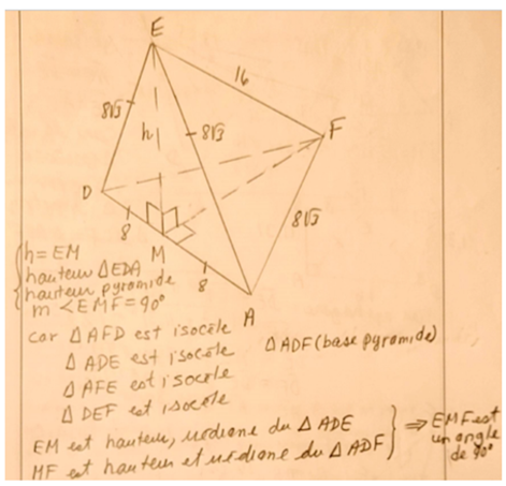 E
16
8√3
h
8√3
F
D
8
8√3
M
8
A
h = EM
hauteur ΔEDA
hauteur pyramide
m <EMF = 90°
car Δ AFD est isocèle
Δ ADF (base pyramide)
Δ ADE est isocèle
Δ AFE est isocèle
Δ DEF est isocèle
EM est hauteur, médiane du Δ ADE
MF est hauteur et médiane du Δ ADF
⇒ EMF est
un angle
de 90°